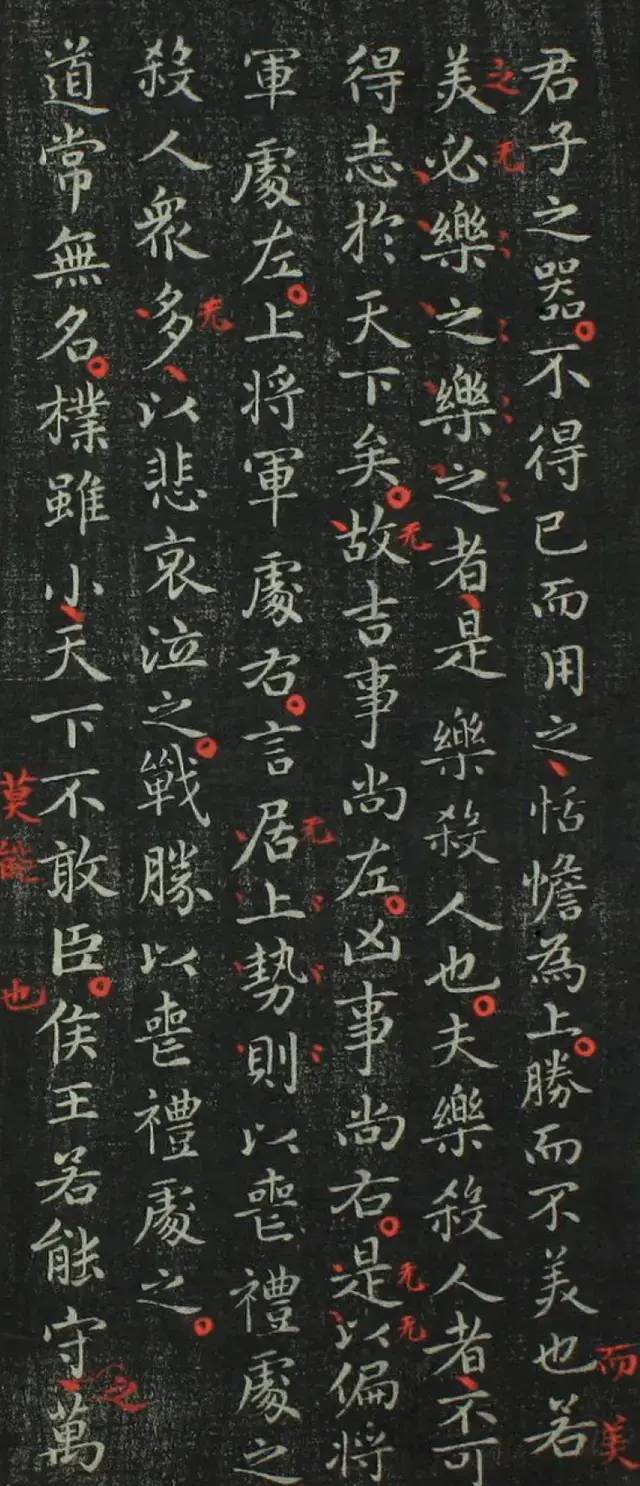 君子之器。不得已而用之、恬憺為上。勝而不美也若
而美
美必樂之樂之者、是樂殺人也。夫樂殺人者、不可
之无
得志於天下矣。故吉事尚左。凶事尚右。是以偏將
无无无
軍處左。上將軍處右。言居上勢則以喪禮處之
无
殺人衆多、以悲哀泣之。戰勝以喪禮處之。
无
道常無名。樸雖小、天下不敢臣。侯王若能守、萬
之
莫能也